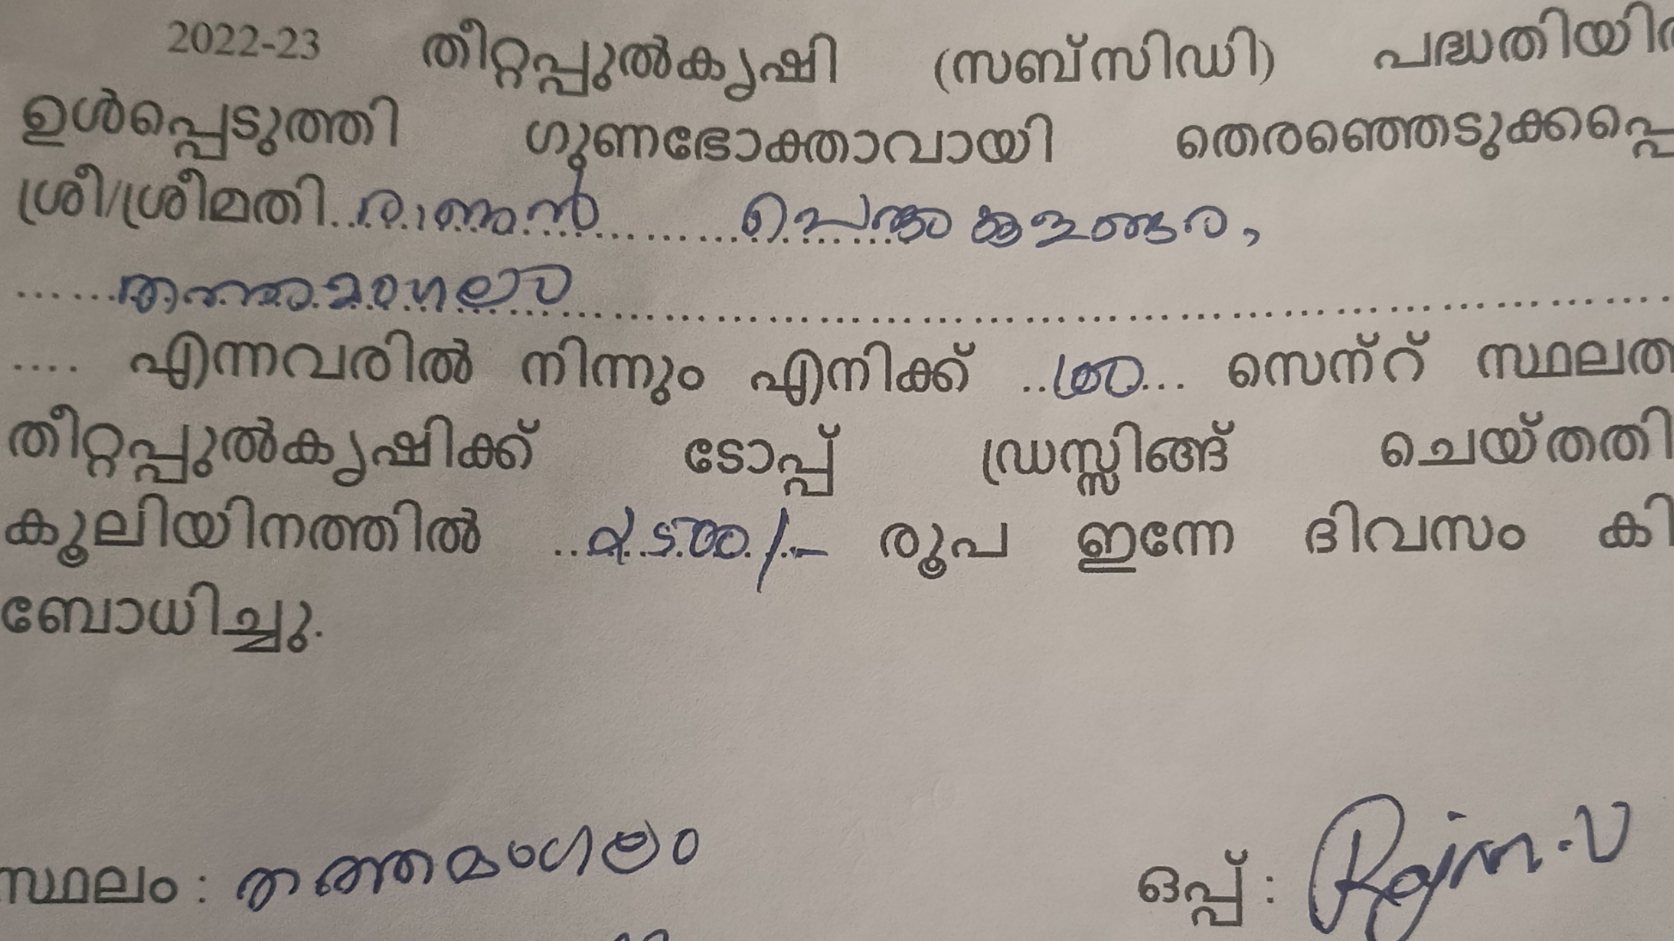 2022-23 തീറ്റപ്പുൽകൃഷി (സബ്സിഡി) പദ്ധതിയിൽ
ഉൾപ്പെടുത്തി ഗുണഭോക്താവായി തെരഞ്ഞെടുക്കപ്പെ
ശ്രീ/ശ്രീമതി..
......തത്തമംഗലം......
.... എന്നവരിൽ നിന്നും എനിക്ക് ..... സെന്റ് സ്ഥലത
തീറ്റപ്പുൽകൃഷിക്ക് ടോപ്പ് ഡ്രസ്സിങ്ങ് ചെയ്തതി
കൂലിയിനത്തിൽ രൂപ ഇന്നേ ദിവസം കി
ബോധിച്ചു.
സ്ഥലം : തത്തമംഗലം
ഒപ്പ് :